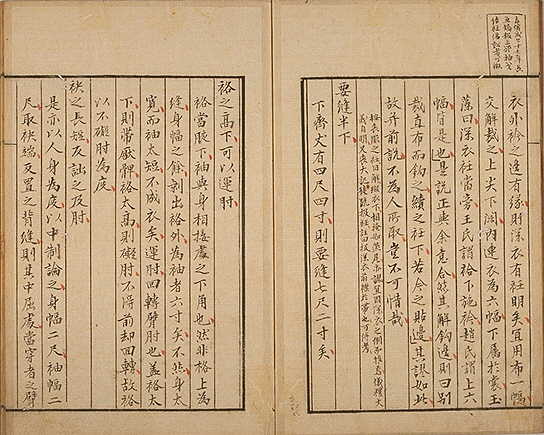 衣外衿之邊有緣則深衣有衽明矣宜用布一幅
交解裁之上尖下闊內連衣為六幅下屬於裳玉
藻曰深衣衽當旁王氏謂袷下施衿趙氏謂上六
幅皆是也是說正與余意合其解鉤邊則曰別
裁直布而鉤之續之衽下若今之貼邊其謬如此
故并前說不為人所取豈不可惜哉
要縫半下
下齊丈有四尺四寸則要縫七尺二寸矣
袼之高下可以運肘
袼當腋下袖與身相接處之下角也然非袼上為
縫身幅之餘剥出袼外為袖者六寸矣不然身太
寬而袖太短不成衣矣運肘回轉臂肘也蓋袼太
下則帶壓髀袼太高則礙肘不得前却回轉故袼
以不礙肘為度
袂之長短反詘之及肘
是亦以人身為度以中制論之身幅二尺袖幅二
尺取袂端反置之背縫則其中屈處當穿者之臂